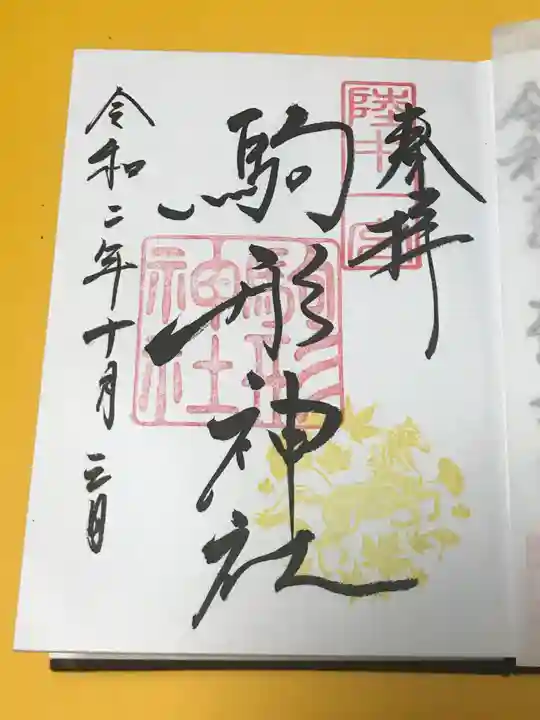 奉拝
陸中一宮
駒形神社
駒形神社
令和二年十月三日